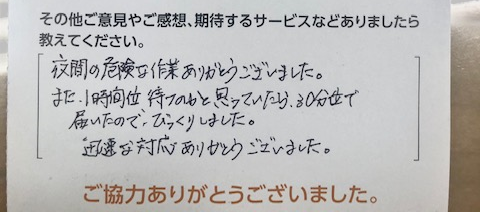 その他ご意見やご感想、期待するサービスなどありましたら
教えてください。
夜間の危険な作業ありがとうございました。
また、1時間位待つのかと思っていたら、30分位で
届いたので、びっくりしました。
迅速な対応ありがとうございました。
ご協力ありがとうございました。